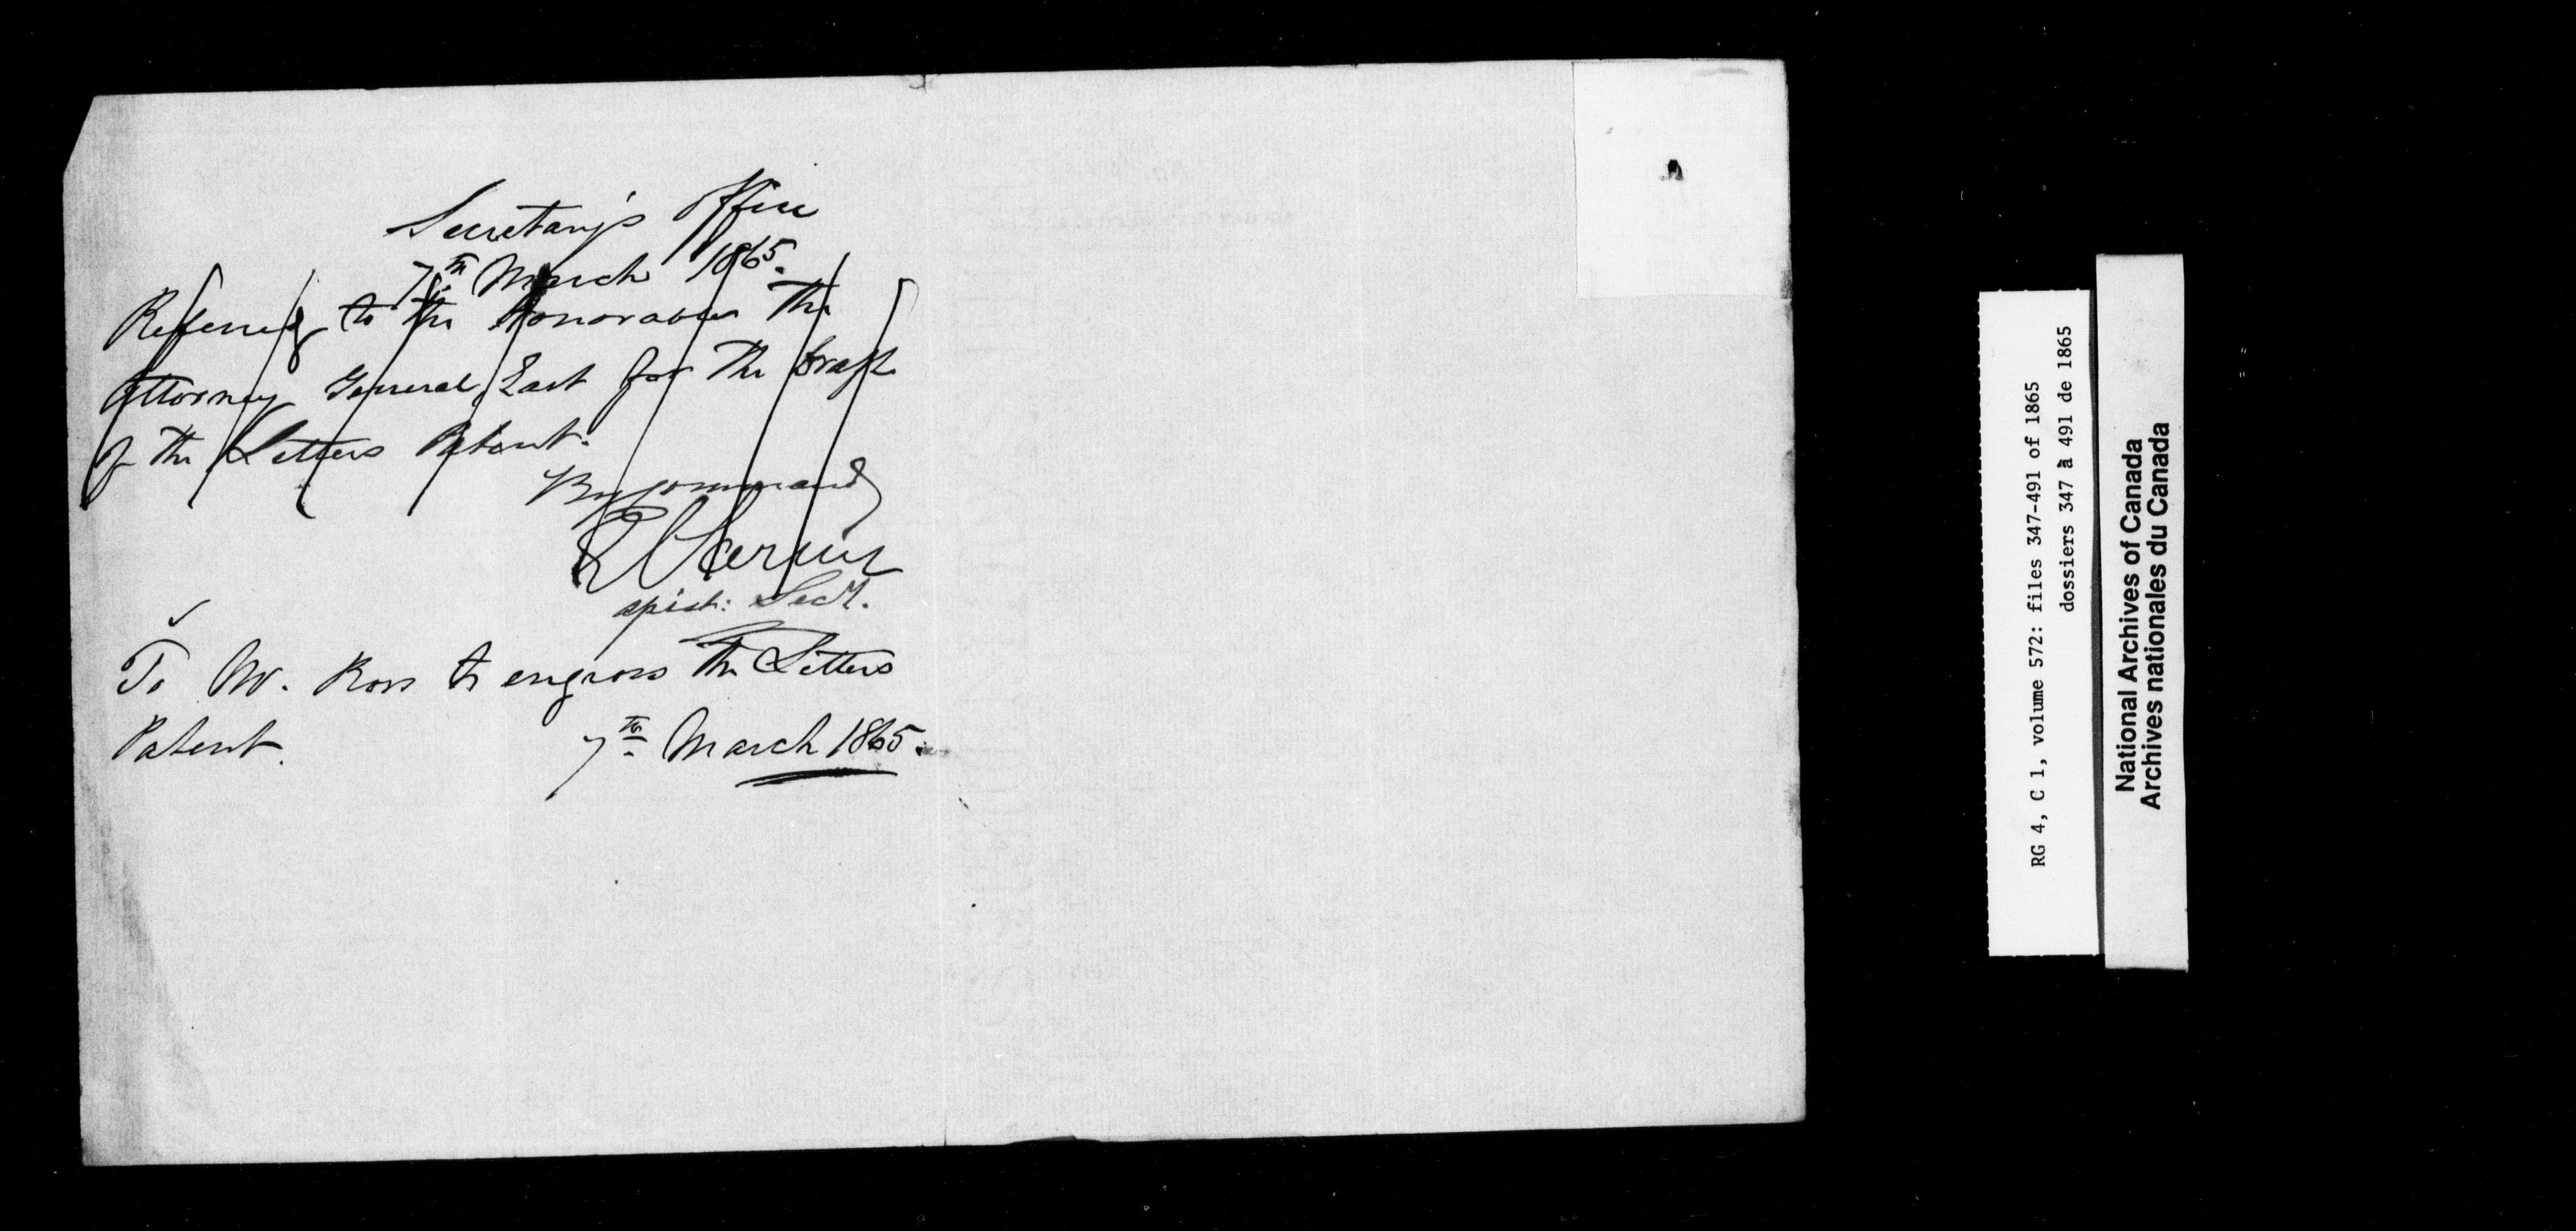 Secretary's Office
7th March 1865.
Referred to the Honorable The
Attorney General East for the draft
of the Letters Patent.
By command
assist: Secy.
To Mr. Ross to engross the Letters
Patent.
7th March 1865.
RG 4, C 1, volume 572: files 347-491 of 1865
dossiers 347 à 491 de 1865
National Archives of Canada
Archives nationales du Canada